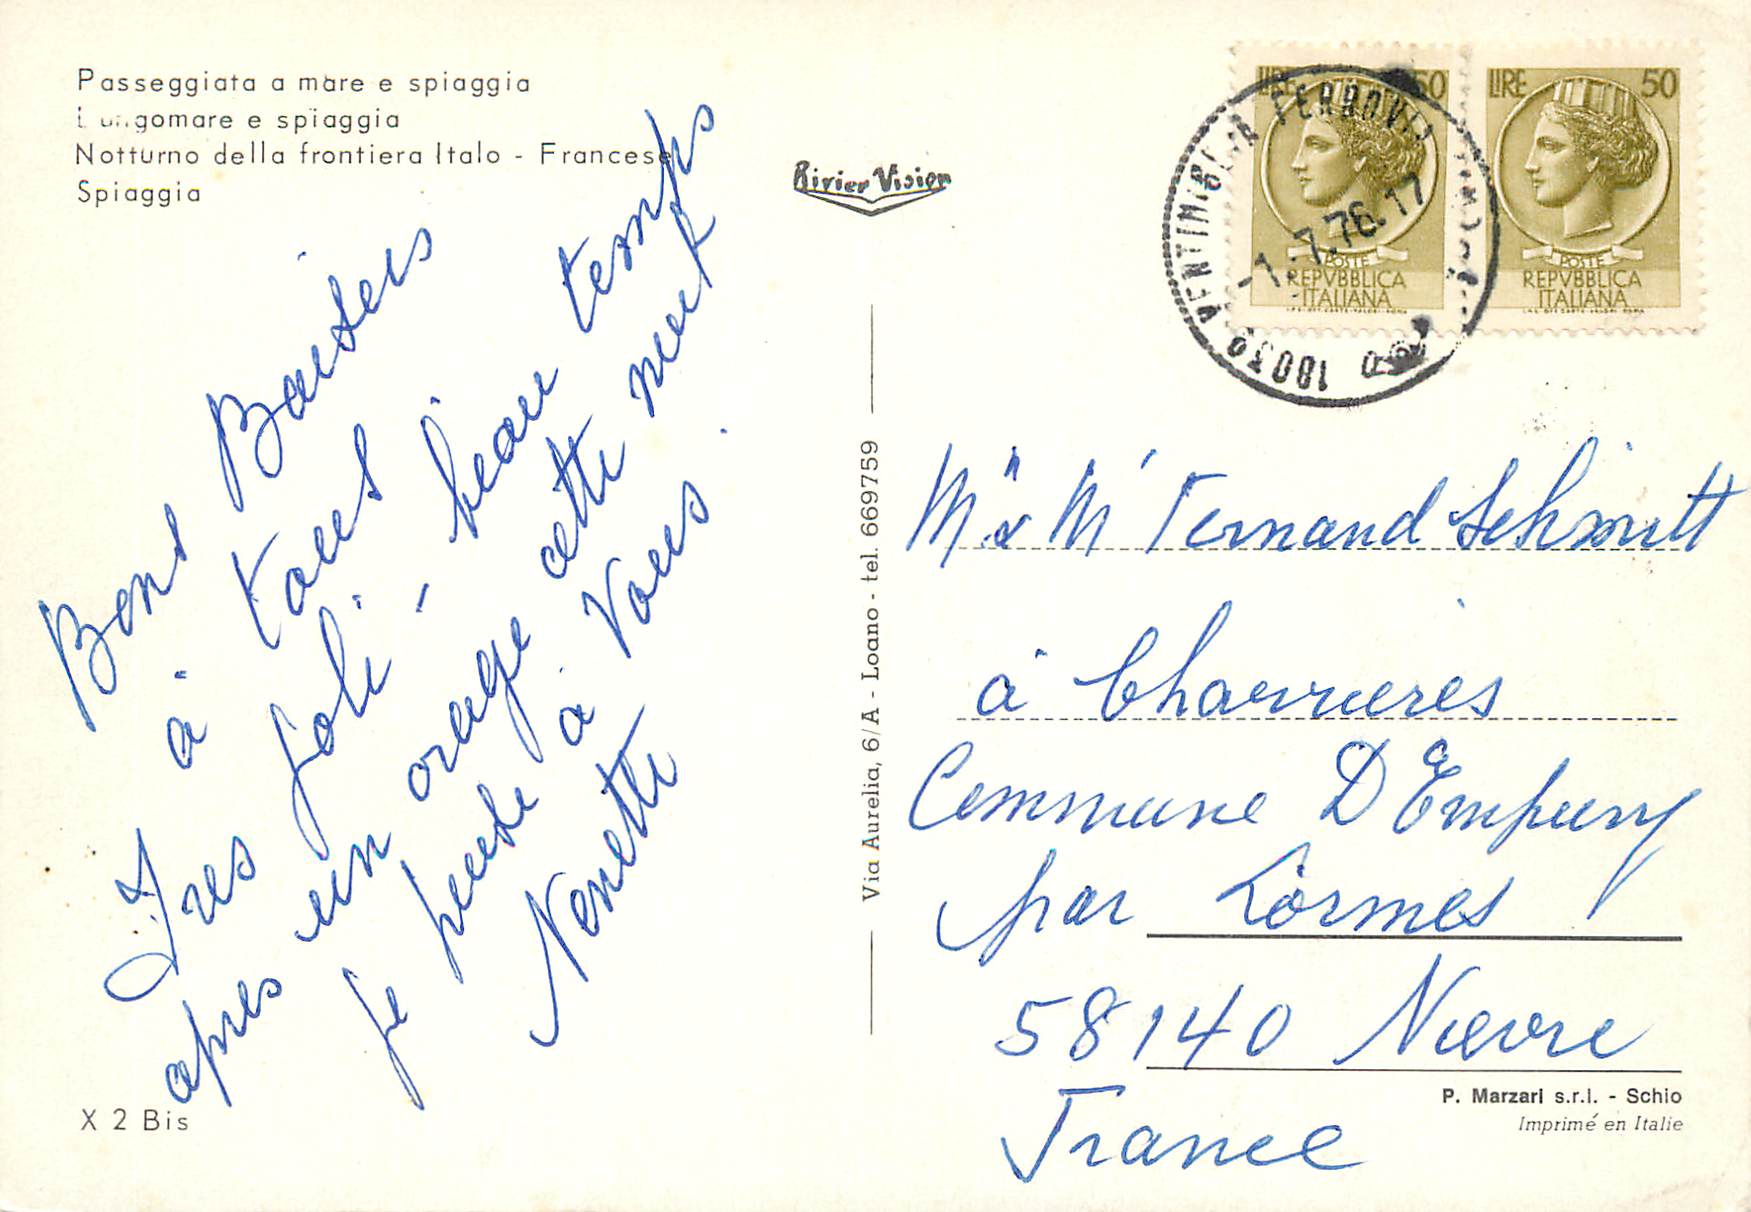 Passeggiata a mare e spiaggia
Lungomare e spiaggia
Notturno della frontiera Italo - Francese
Spiaggia
Rivier Vision
Bons Baisers
à tous
Tres joli - beau temps
apres un orage cette nuit
je pense à Vous.
Nenette
X 2 Bis
Via Aurelia, 6/A - Loano - tel. 669759
LIRE 50
POSTE
REPVBBLICA
ITALIANA
LIRE 50
POSTE
REPVBBLICA
ITALIANA
VENTIMIGLIA FERROVIA
-1.-7.76.17
18039
Mr & Me Fernand Schmitt
à Charrieres
Commune D'Empury
par Lormes
58140 Nievre
France
P. Marzari s.r.l. - Schio
Imprimé en Italie